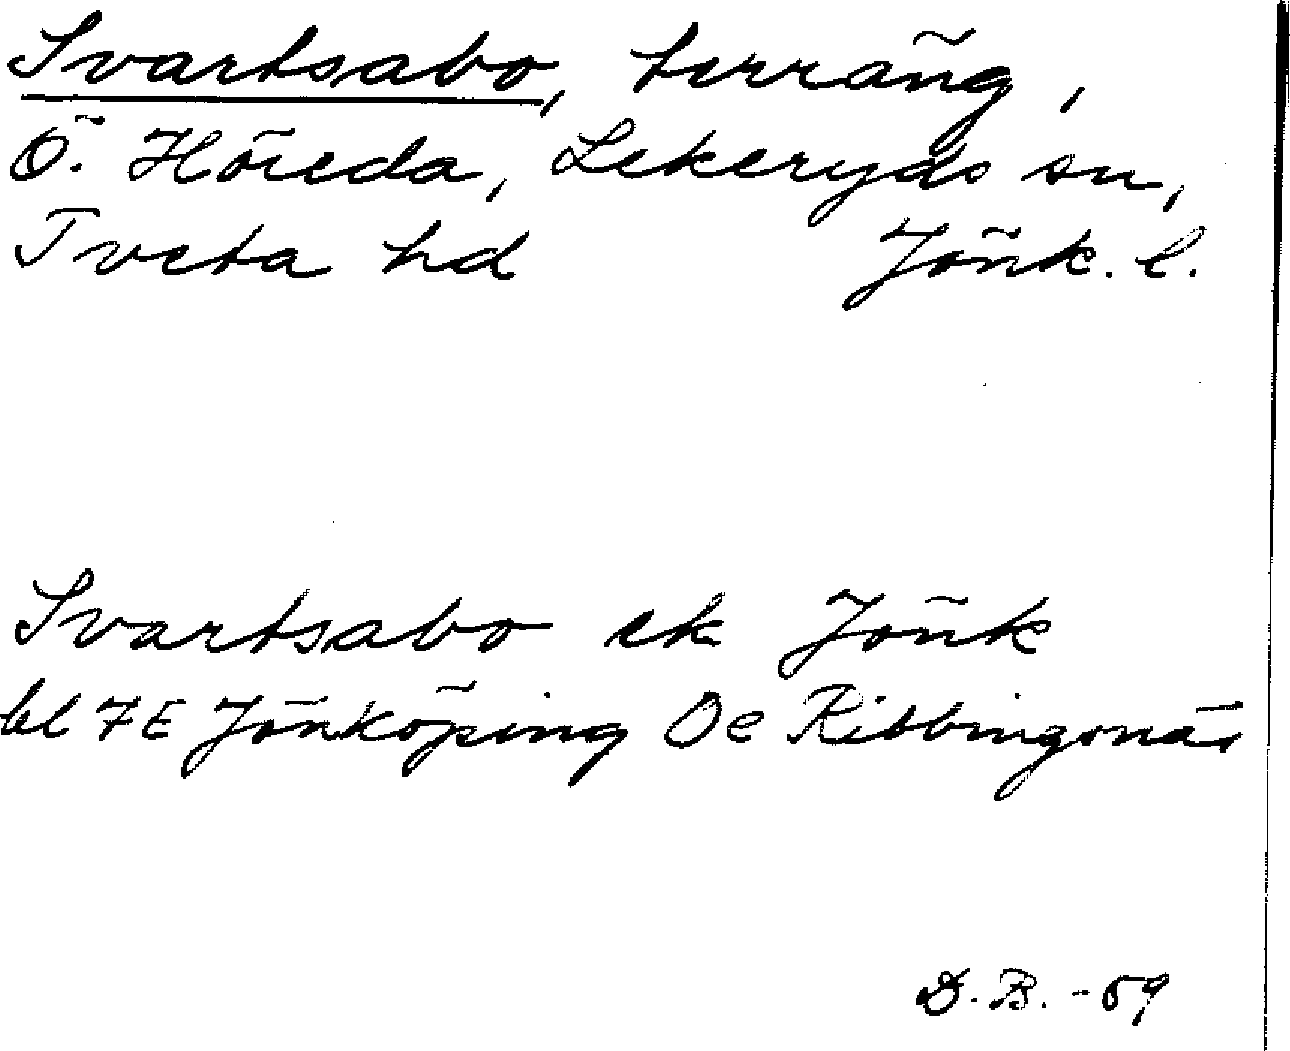 Svartsabo, terräng,
Ö. Höreda, Lekeryds sn,
Tveta hd Jönk. l.
Svartsabo ek Jönk
bl 7E Jönköping Oe Ribbingsnäs
D.B. -59